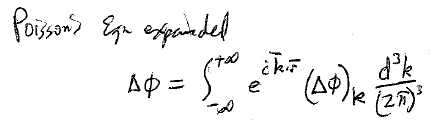 Poisson's Eqn expanded
Δϕ = ∫_{-∞}^{+∞} e^{i k̄·r̄} (Δϕ)_k d³k/(2π)³